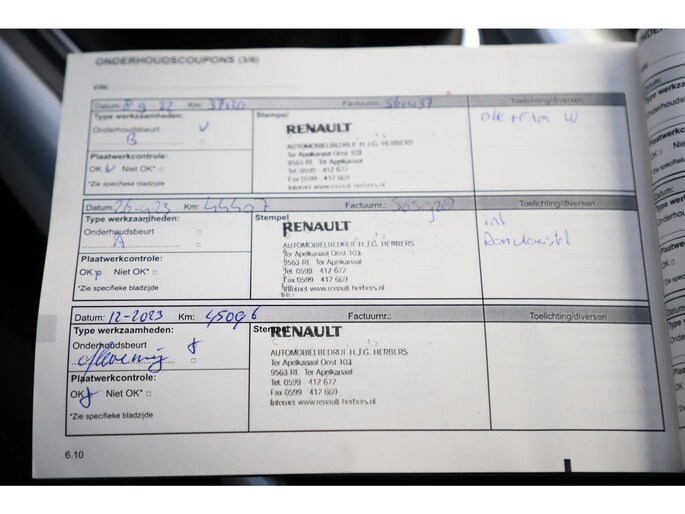 ONDERHOUDSCOUPONS (3/6)
VIN:
Datum: 8 9 22 Km: 37120 Factuurnr.: Toelichting/diversen
Type werkzaamheden: Stempel
Onderhoudsbeurt V RENAULT
B
AUTOMOBIELBEDRIJF H.J.G. HERBERS
Plaatwerkcontrole: Ter Apelkanaal Oost 103
OK V Niet OK* □ 9563 RE Ter Apelkanaal
Tel. 0599 412 672
*Zie specifieke bladzijde Fax 0599 412 669
Internet www.renault-herbers.nl
Datum: Km: Factuurnr.: Toelichting/diversen
Type werkzaamheden: Stempel
Onderhoudsbeurt □ RENAULT
A □
AUTOMOBIELBEDRIJF H.J.G. HERBERS
Plaatwerkcontrole: Ter Apelkanaal Oost 103
OK Niet OK* □ 9563 RE Ter Apelkanaal
Tel. 0599 412 672
*Zie specifieke bladzijde Fax 0599 412 669
Internet www.renault-herbers.nl
Datum: 12-2023 Km: 45096 Factuurnr.: Toelichting/diversen
Type werkzaamheden: Stempel RENAULT
Onderhoudsbeurt
aflevering □ AUTOMOBIELBEDRIJF H.J.G. HERBERS
Ter Apelkanaal Oost 103
Plaatwerkcontrole: 9563 RE Ter Apelkanaal
Tel. 0599 412 672
OK Niet OK* □ Fax 0599 412 669
Internet www.renault-herbers.nl
*Zie specifieke bladzijde
6.10